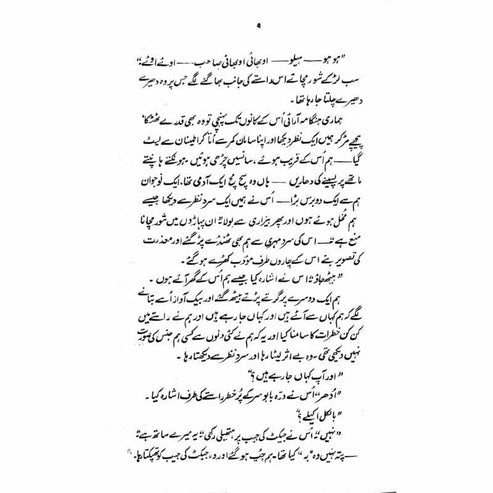 ۹
"ہو ہو — ہیلو — او بھائی او بھائی صاحب — اوئے اوئے!"
سب لڑکے شور مچاتے اس راستے کی جانب بھاگنے لگے جس پر وہ دھیرے
دھیرے چلتا جا رہا تھا۔
ہماری ہنگامہ آرائی اُس کے کانوں تک پہنچی تو وہ بھی قدرے ٹھٹکا
پیچھے مڑ کر ہمیں ایک نظر دیکھا اور اپنا سامان کمر سے اُتار کر اطمینان سے لیٹ
گیا — ہم اُس کے قریب ہوئے، سانسیں چڑھی ہوئیں، بھونکتے ہانپتے
ماتھے پر پسینے کی دھاریں — ہاں وہ سچ مچ ایک آدمی تھا، ایک نوجوان
ہم سے ایک دو برس بڑا — اُس نے ہمیں سرد نظر سے دیکھا جیسے
ہم مخل ہوئے ہوں اور پھر بیزاری سے بولا "ان پہاڑوں میں شور مچانا
منع ہے" — اس کی سرد مہری سے ہم بھی ٹھنڈے پڑ گئے اور معذرت
کی تصویر بنے اس کے چاروں طرف مؤدب کھڑے ہو گئے۔
"بیٹھ جاؤ" اُس نے اشارہ کیا جیسے ہم اُس کے گھر آئے ہوں۔
ہم ایک دوسرے پر گرتے پڑتے بیٹھ گئے اور بیک آواز اُسے بتانے
لگے کہ ہم کہاں سے آئے ہیں اور کہاں جا رہے ہیں اور ہم نے راستے میں
کن کن خطرات کا سامنا کیا اور یہ کہ ہم نے کئی دنوں سے کسی ہم جنس کی صورت
نہیں دیکھی تھی۔ وہ بے اثر لیٹا رہا اور سرد نظر سے دیکھتا رہا۔
"اور آپ کہاں جا رہے ہیں؟"
"اُدھر" اُس نے درّہ بابوسر کے پُرخطر راستے کی طرف اشارہ کیا۔
"بالکل اکیلے؟"
"نہیں" اُس نے جیکٹ کی جیب پر ہتھیلی رکھی "یہ میرے ساتھ ہے"
پتہ نہیں وہ "یہ" کیا تھا۔ ہم چپ ہو گئے اور وہ جیکٹ کی جیب کو تھپکتا رہا۔